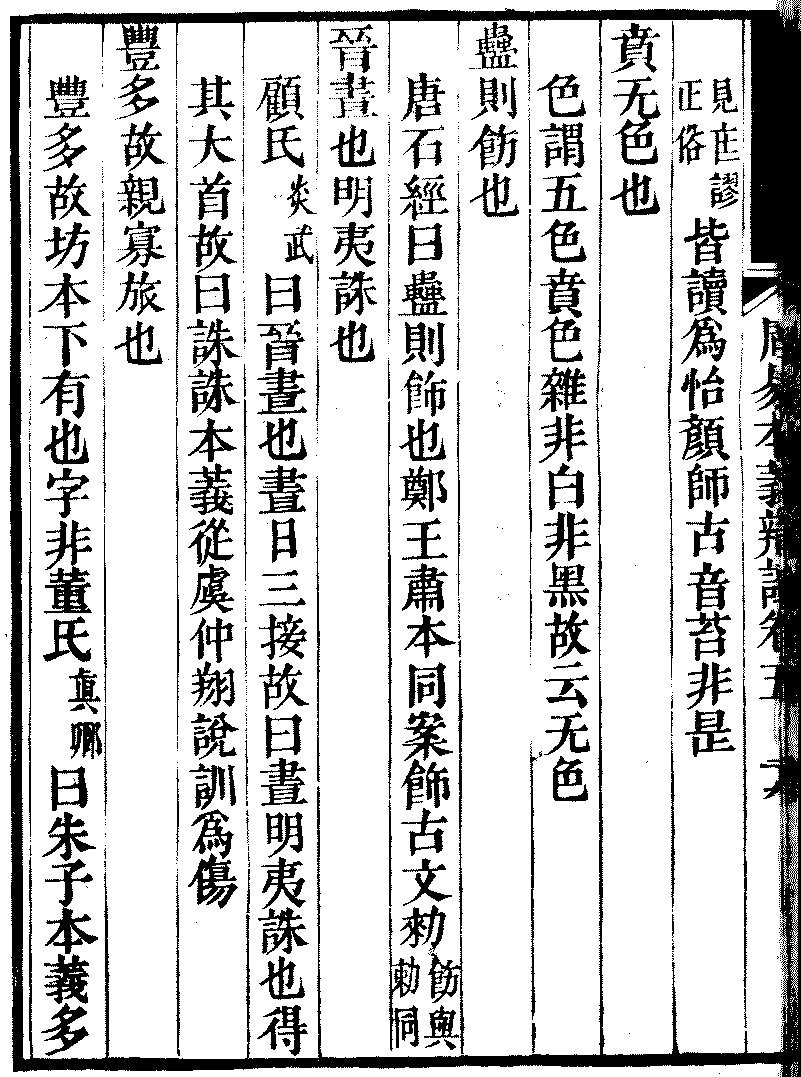 周易本義辨證卷五
見匡謬正俗皆讀爲怡顏師古音苔非是
賁无色也
色謂五色賁色雜非白非黑故云无色
蠱則飭也
唐石經曰蠱則飾也鄭王肅本同案飾古文勑飭與勅同
晉晝也明夷誅也
顧氏炎武曰晉晝也晝日三接故曰晝明夷誅也得
其大首故曰誅誅本義從虞仲翔說訓爲傷
豐多故親寡旅也
豐多故坊本下有也字非董氏真卿曰朱子本義多